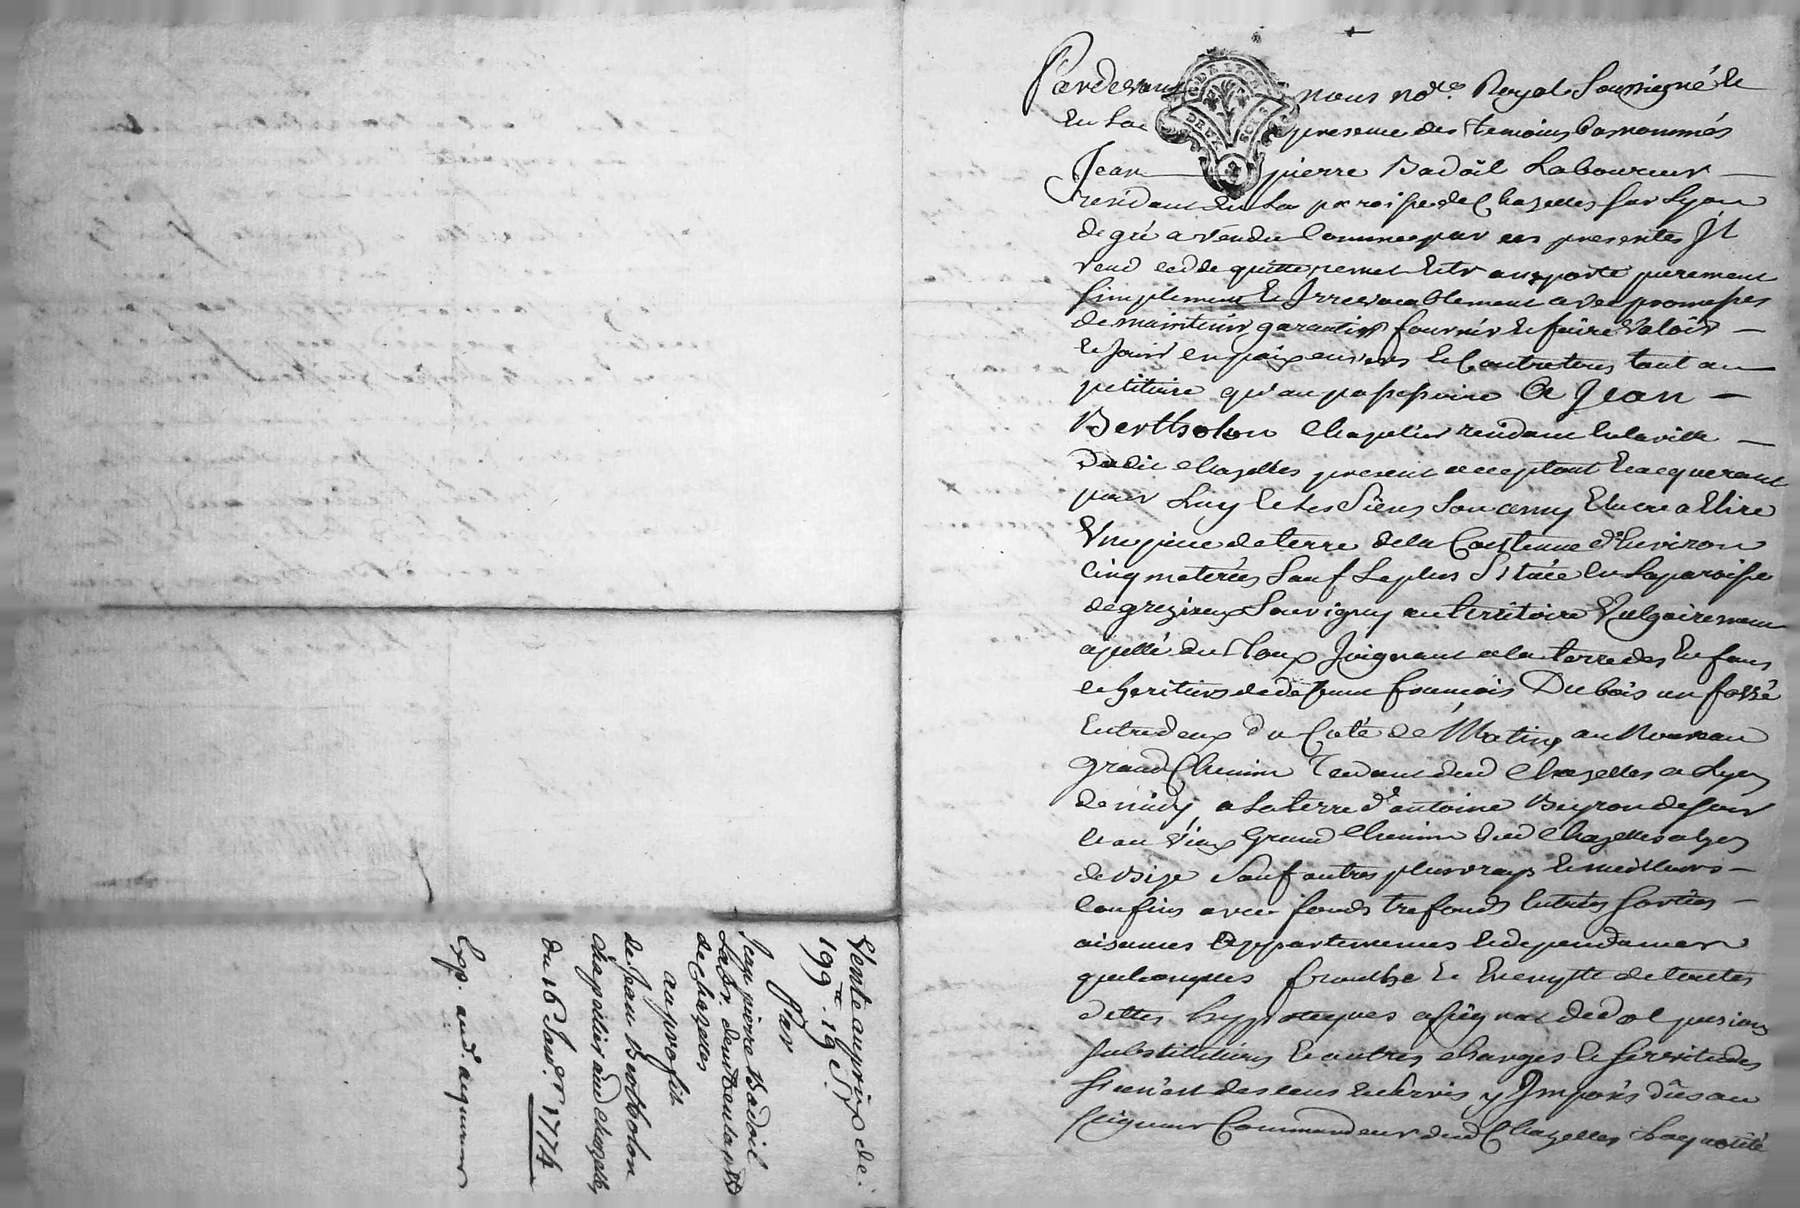 Vente au prix de
199.ᵗᵗ 19 S.
Par
Jean pierre Badoil
Lab.r demt. en la p.sse
de chazelles
au profit
de Jean Bertholon
chapelier aud chazelles
du 16 Janv.r 1774
Exp. aud. acquereur
Pardevant nous no.re Royal Soussigné et
en la presence des temoins bas nommés
Jean pierre Badoil Laboureur
residant en la paroisse de Chazelles sur Lyon
de gré a vendu comme par ces presentes Il
vend cedde quitte remet et transporte purement
simplement et Irrevocablement avec promesses
de maintenir garantir fournir et faire valoir
et jouir en paix envers et Contre tous tant au
petitoire qu'au possessoire A Jean
Bertholon Chapelier residant en la ville
dudit chazelles present acceptant et acquerant
pour Luy et les Siens Son amy Elu ou a Elire
Une piece de terre de la Contenue d'Environ
cinq meterées Sauf Le plus Située en la paroisse
de grezieux Souvigny au territoire Vulgairement
apellé du Joignant a la terre des Enfans
et heritiers de deffunt francois Dubois un fossé
Entredeux du Coté de Matin, au Nouveau
Grand Chemin Tendant dud Chazelles a Lyon
de midy, a La terre d'antoine de soir
et au Vieux Grand Chemin dud Chazelles a Lyon
de Bize Sauf autres plus vrays et meilleurs
confins avec fonds trefonds Entrées sorties
aisances appartenances et dependances
quelconques franche et Exempte de toutes
dettes hypoteques pensions
substitutions et autres charges et servitudes
si n'est des cens et servis y Imposés dûs au
seigneur Commandeur dud Chazelles La quotité